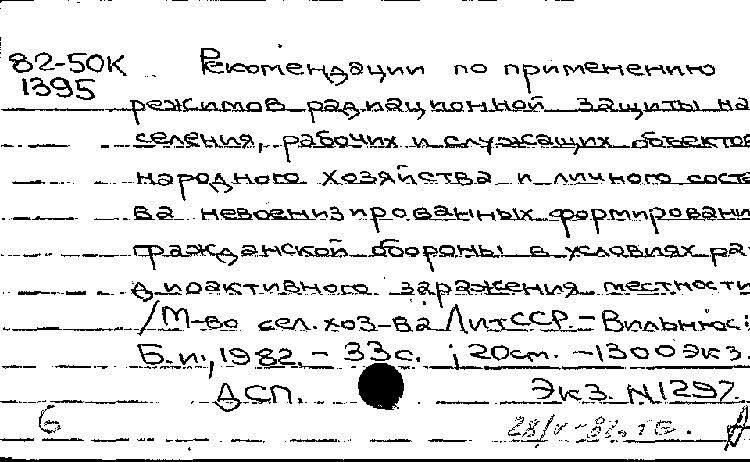 82-50К Рекомендации по применению
1395
режимов радиационной защиты на
селения, рабочих и служащих объектов
народного хозяйства и личного соста
ва невоенизированных формировани
гражданской обороны в условиях ра
диоактивного заражения местности
/М-во сел. хоз-ва ЛитССР.-Вильнюс:
Б.и., 1982. - 33с. ; 20см. -1300экз.
ДСП. Экз. N1297.
6